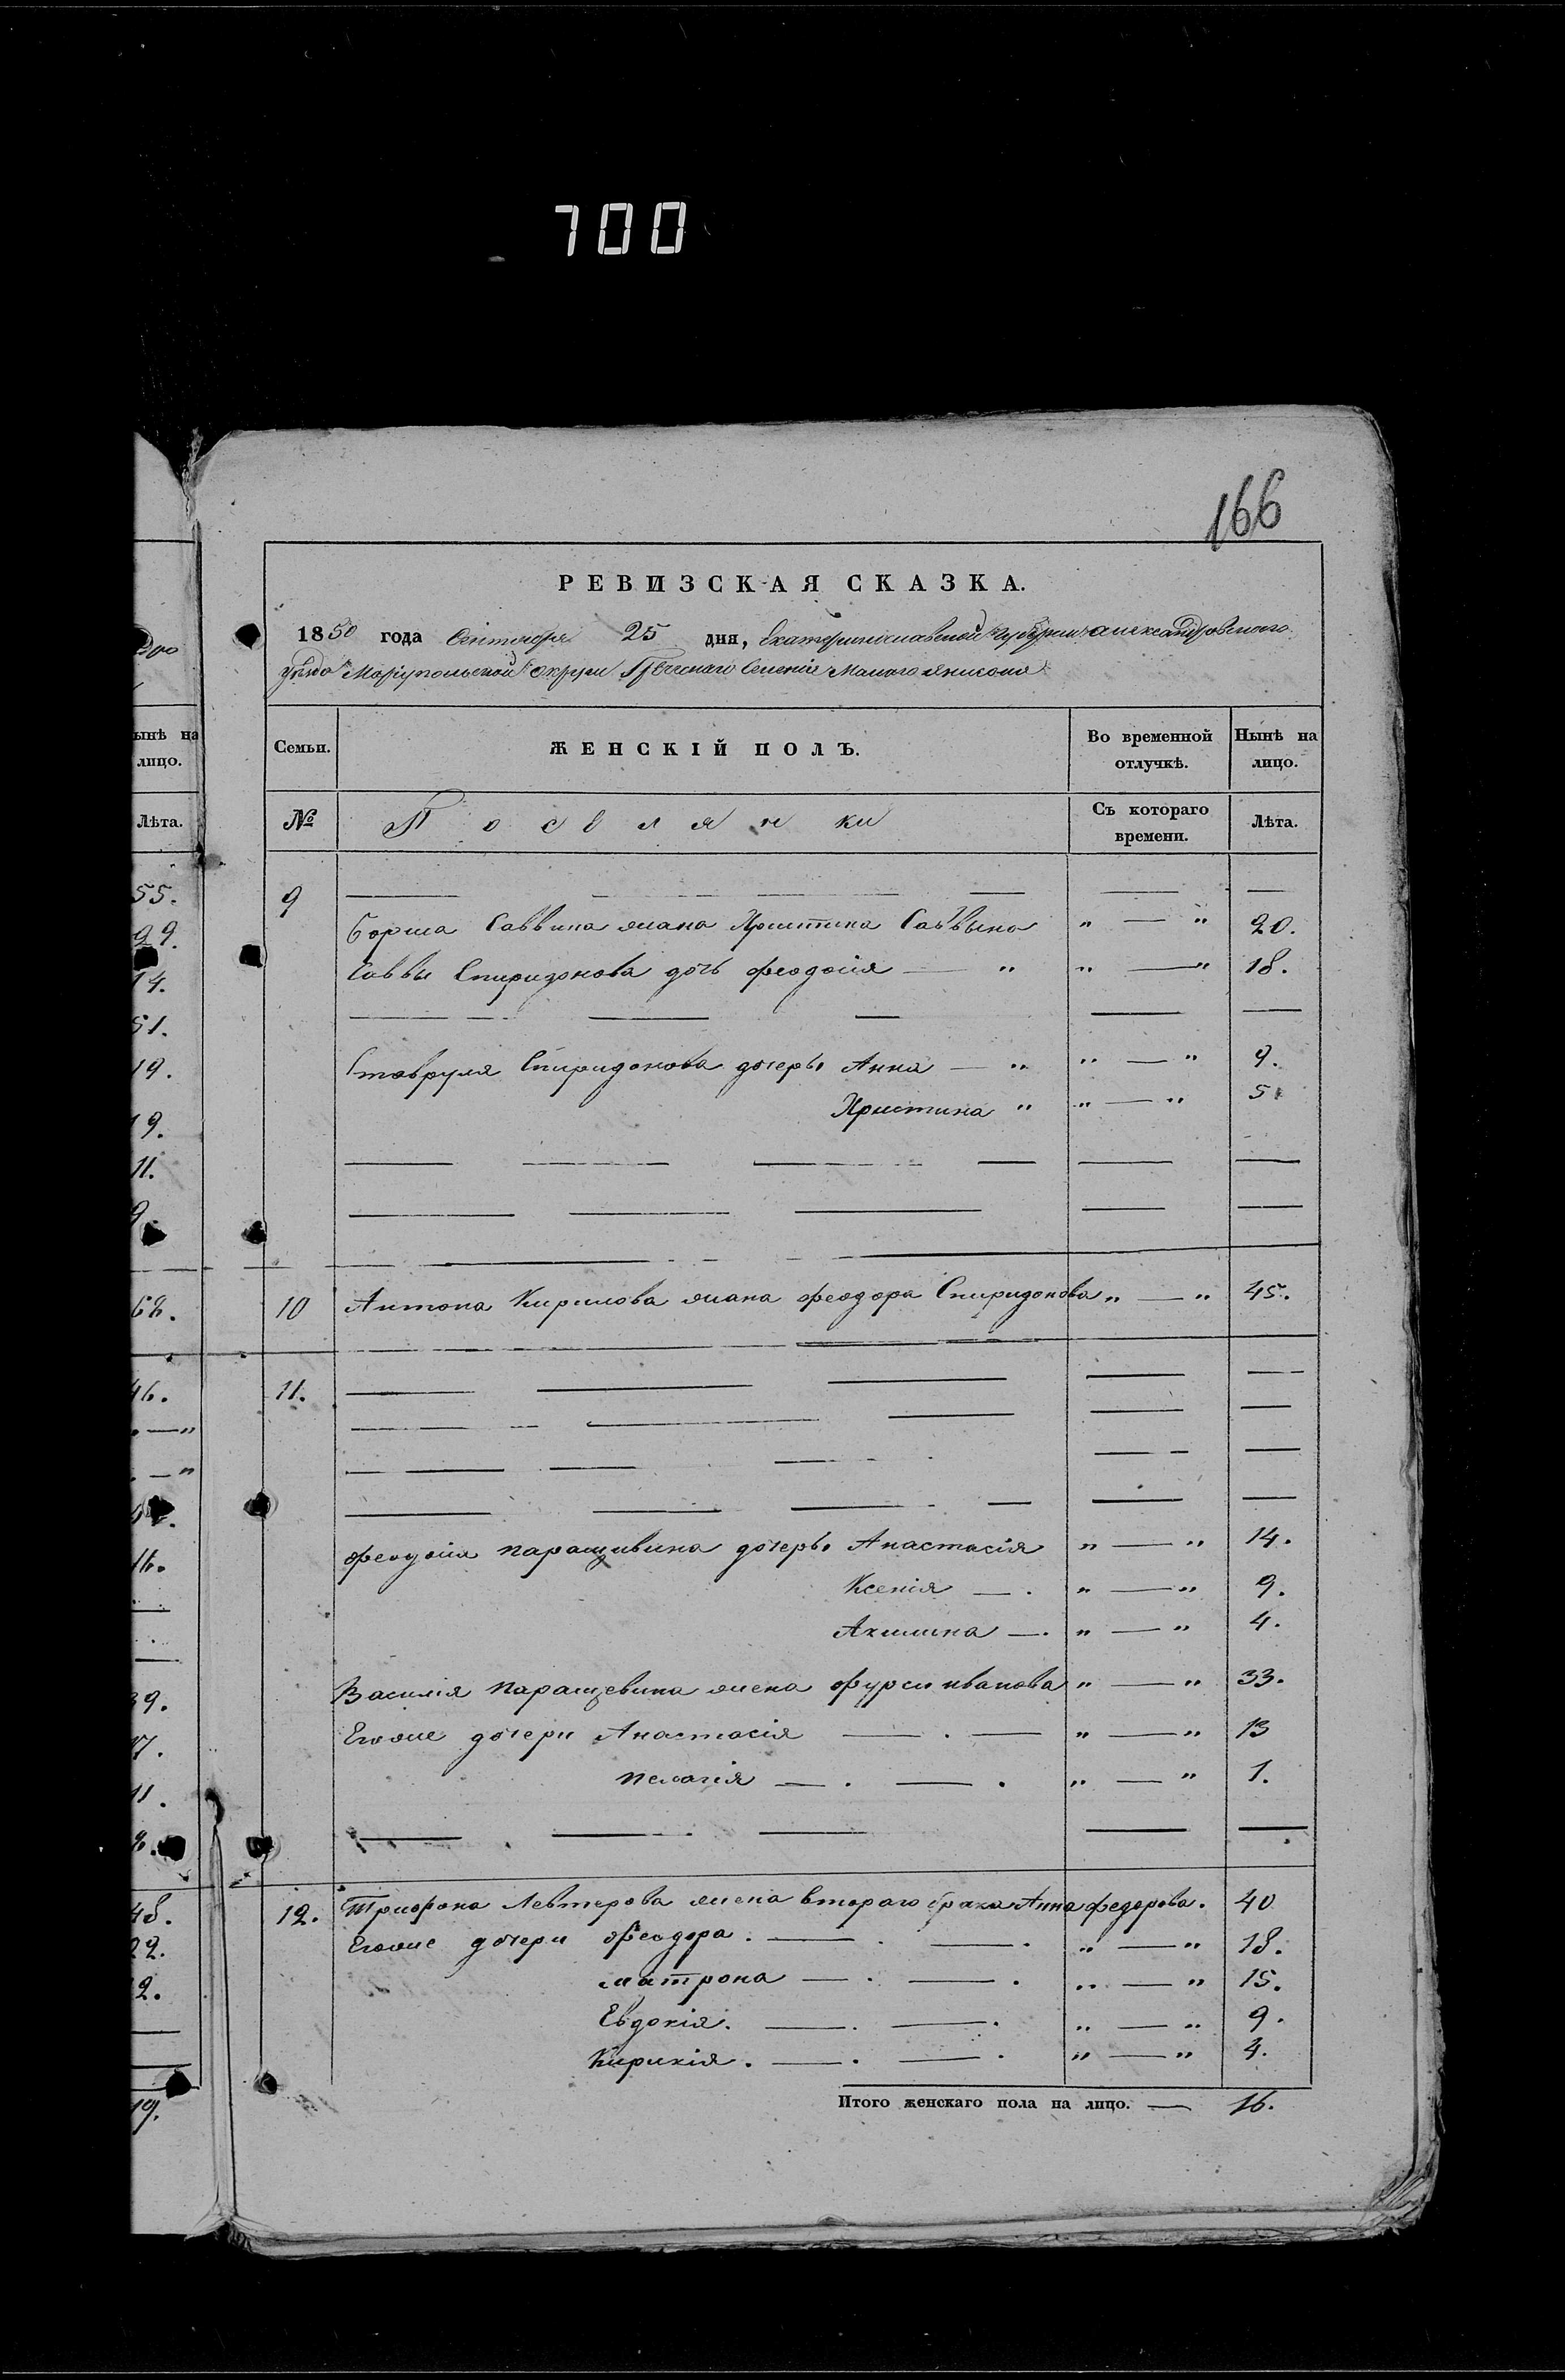 700
166
РЕВИЗСКАЯ СКАЗКА.
1850 года Сентября 25 дня, Екатеринославской Губернии Александровского
уѣзда Маріупольской округи Греческаго Селенія Малого Янисоля
Семьи.
ЖЕНСКІЙ ПОЛЪ.
Во временной отлучкѣ.
Нынѣ на лицо.
№
Поселянки
Съ котораго времени.
Лѣта.
9
Саввина жена Христина Саввина " — " 20.
Саввы Спиридонова дочь Феодосія — " " — " 18.
Ставруля Спиридонова дочеры Анна — " " — " 9.
Христина " " — " 5.
10 Антона Кирилова жана Феодора Спиридонова " — " 45.
11.
Феодосія Паращивина дочеры Анастасія " — " 14.
Ксенія — . " — " 9.
Акилина — . " — " 4.
Василія Паращевина жена Фурси иванова " — " 33.
Егоже дочери Анастасія — . — " — " 13
Пелагія — . — . " — " 1.
12. Трифона Левтерова жена втораго брака Анна Федорова. 40
Егоже дочери Феодора. — . — . " — " 18.
Матрона — . — . " — " 15.
Евдокія. — . — . " — " 9.
Кирикія. — . — . " — " 4.
Итого женскаго пола на лицо. — 16.
ынѣ на
лицо.
Лѣта.
55.
29.
14.
51.
19.
19.
11.
9.
62.
46.
16.
39.
17.
11.
48.
22.
2.
19.